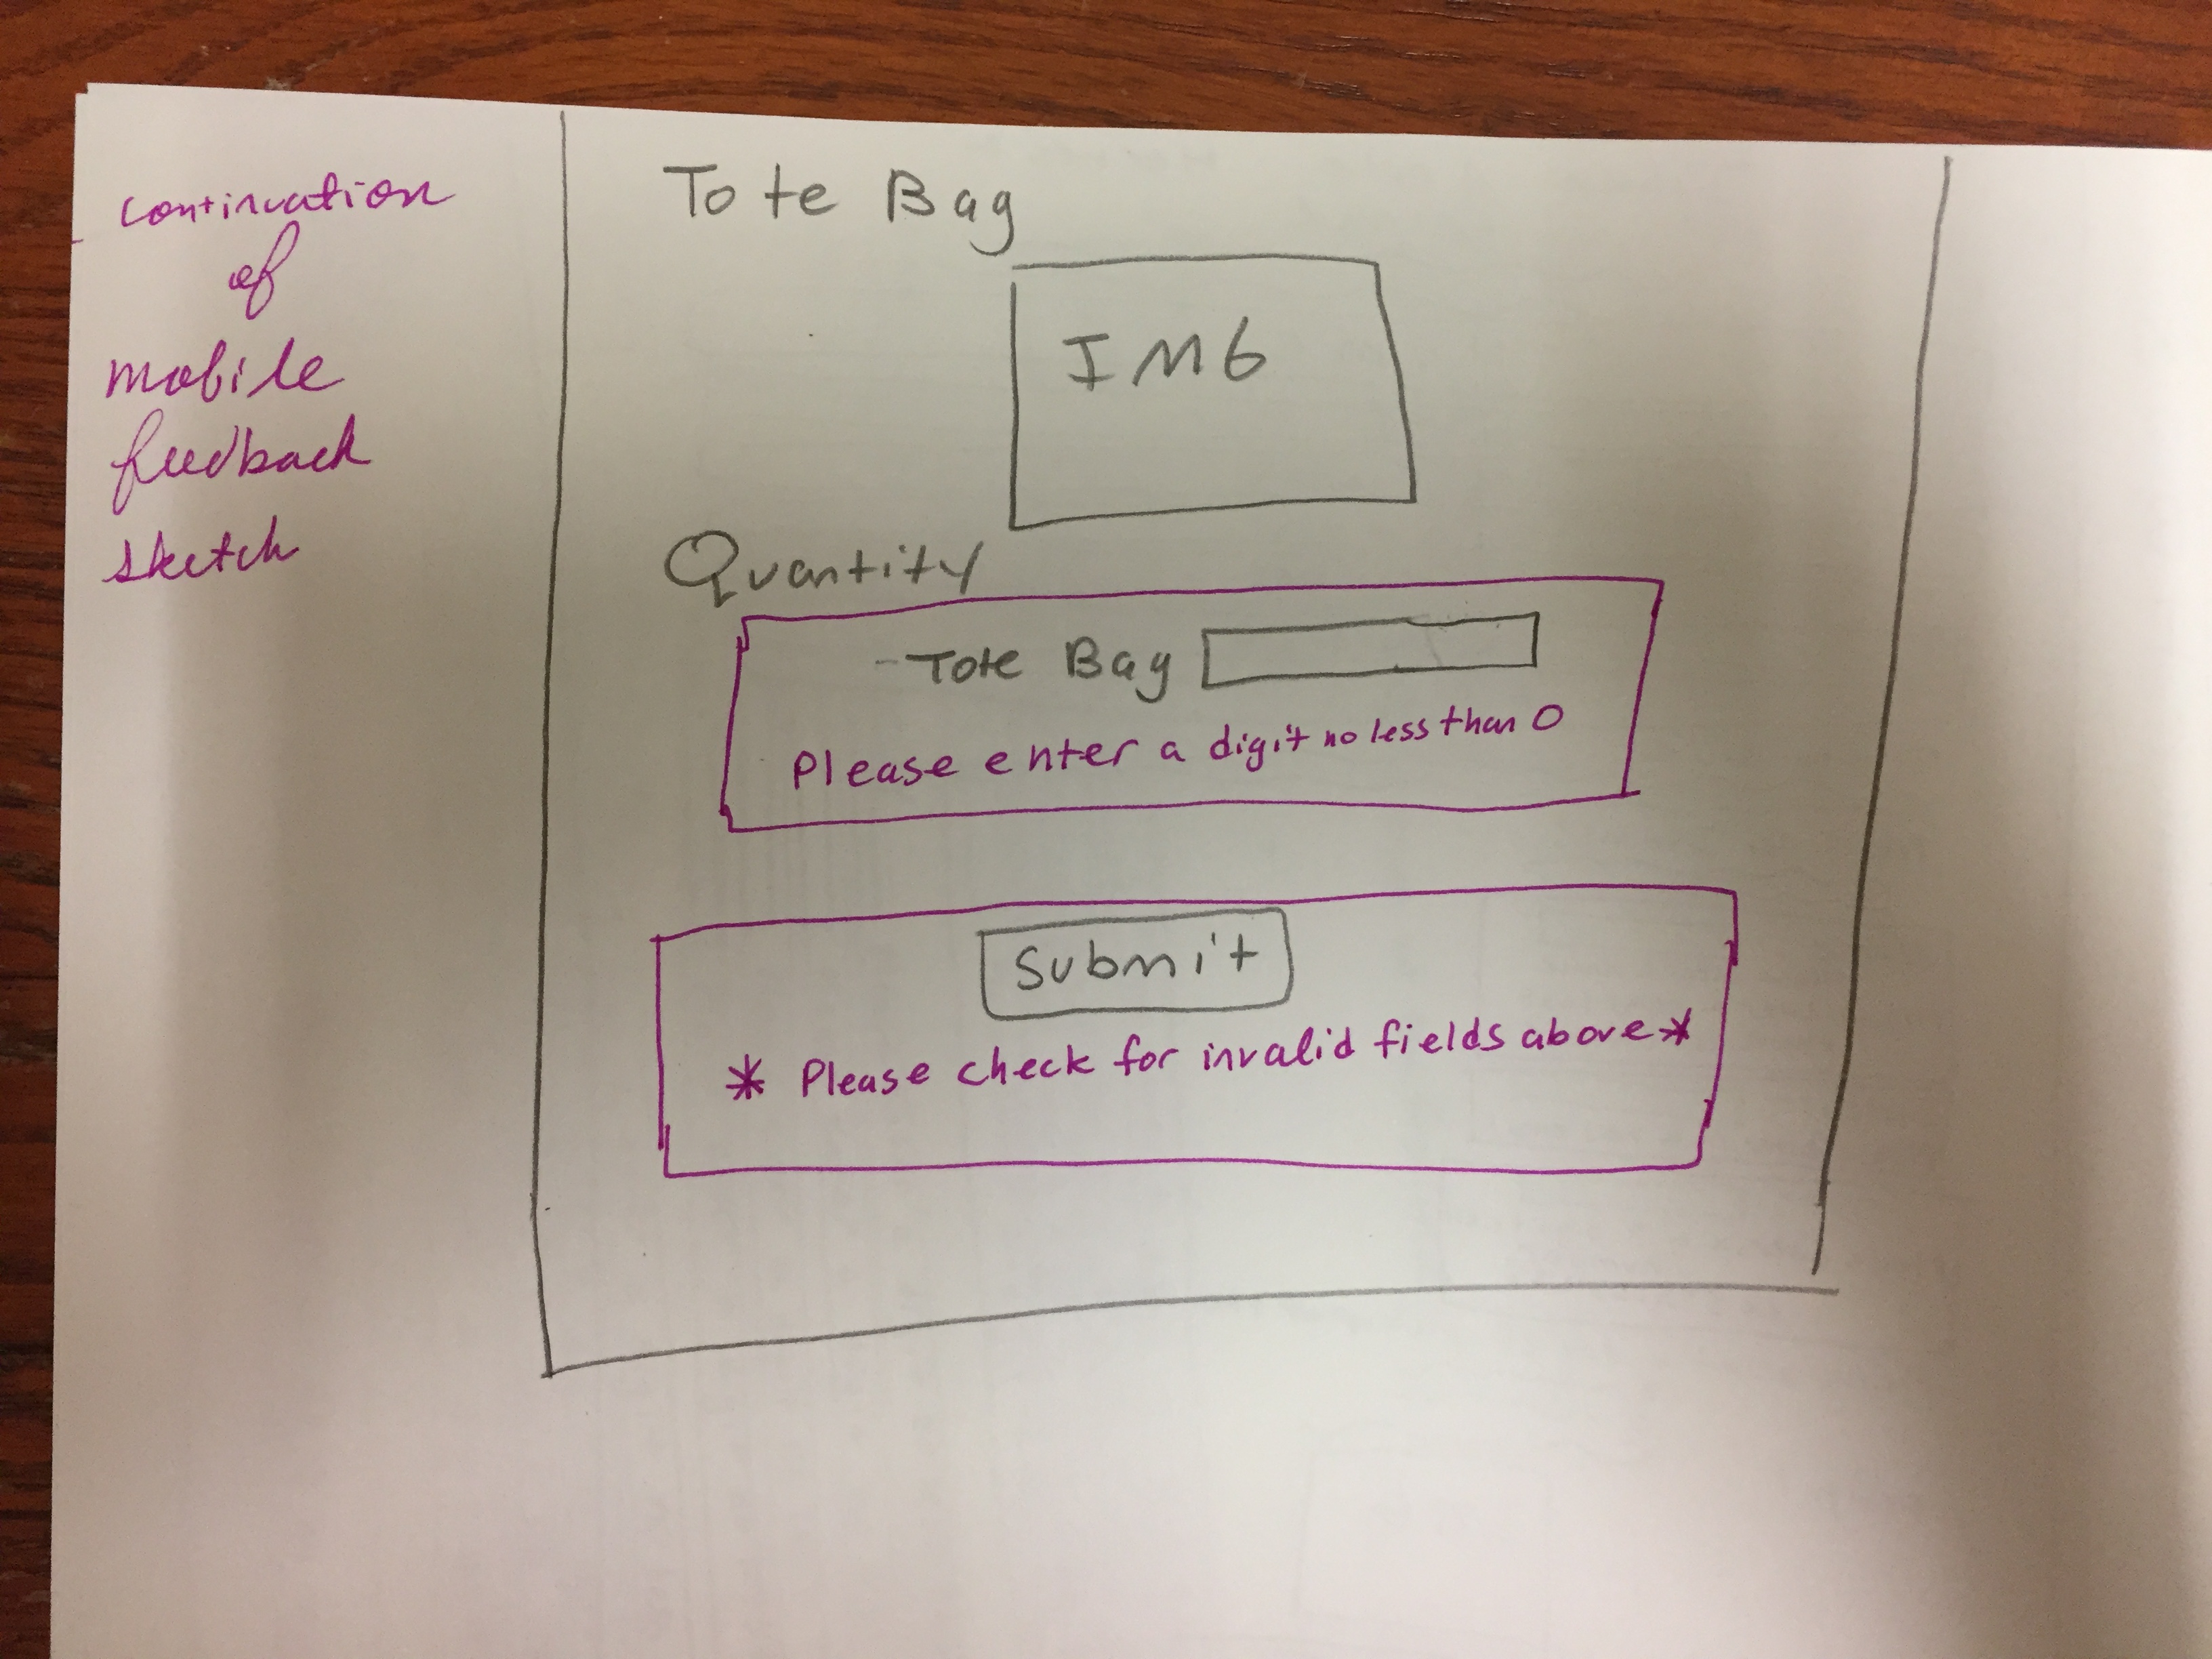 continuation
of
mobile
feedback
sketch
Tote Bag
IMG
Quantity
- Tote Bag
Please enter a digit no less than 0
Submit
* Please check for invalid fields above *